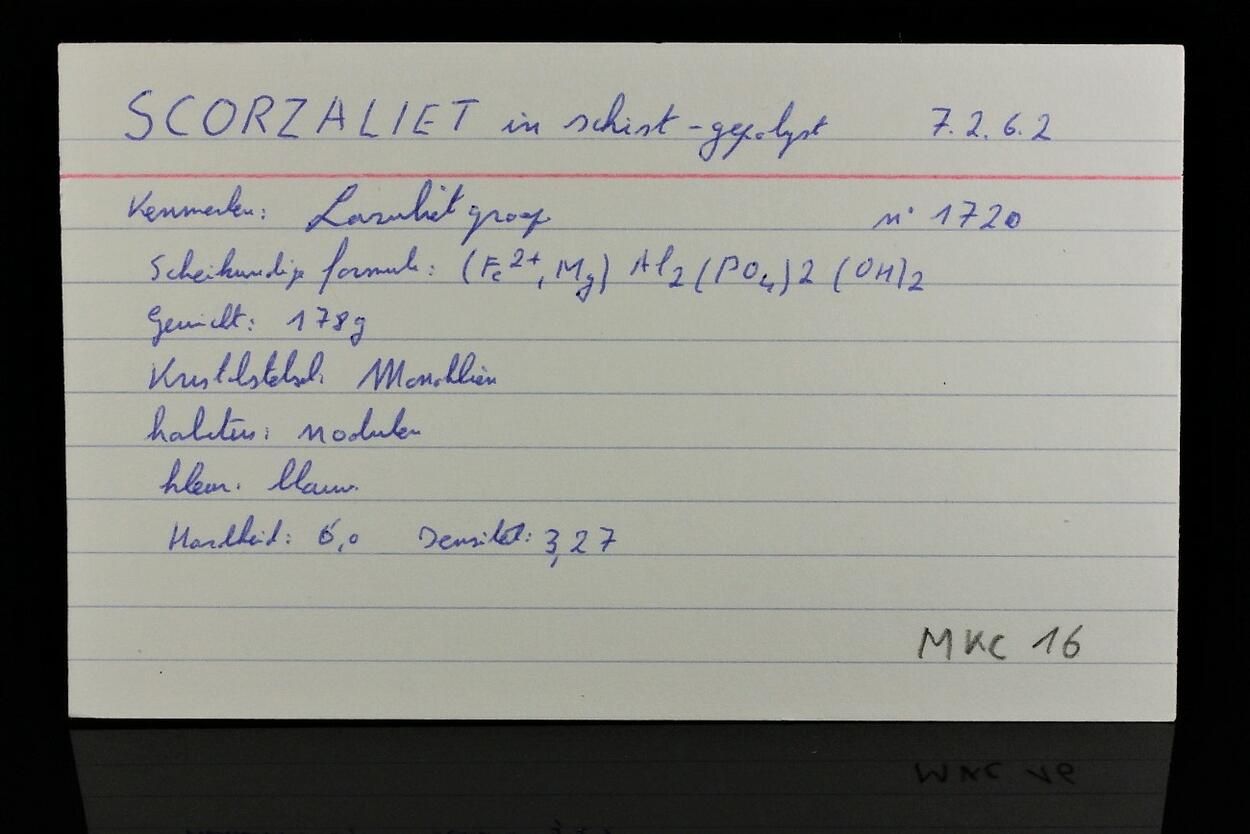 SCORZALIET in schist - gepolyst 7.2.6.2
Kenmerken: Lazuliet groep n° 1720
Scheikundige formule: (Fe2+, Mg) Al2 (PO4)2 (OH)2
Gewicht: 178g
Kristalstelsel: Monoklien
habitus: nodulen
kleur: blauw
Hardheid: 6,0 Densiteit: 3,27
MKC 16